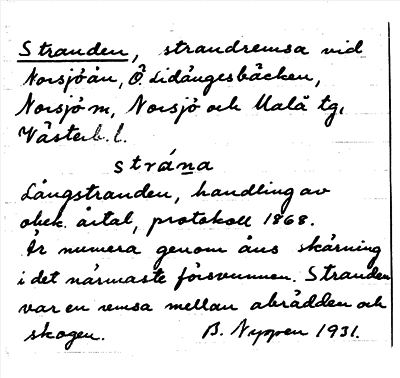 Stranden, strandremsa vid
Norsjöån, Ö. Lidångesbäcken,
Norsjö m, Norsjö och Malå tg,
Västerb. l.
strána
Långstranden, handling av
obek. årtal, protokoll 1868.
Är numera genom åns skärning
i det närmaste försvunnen. Stranden
var en remsa mellan åbrädden och
skogen. B. Nyppen 1931.